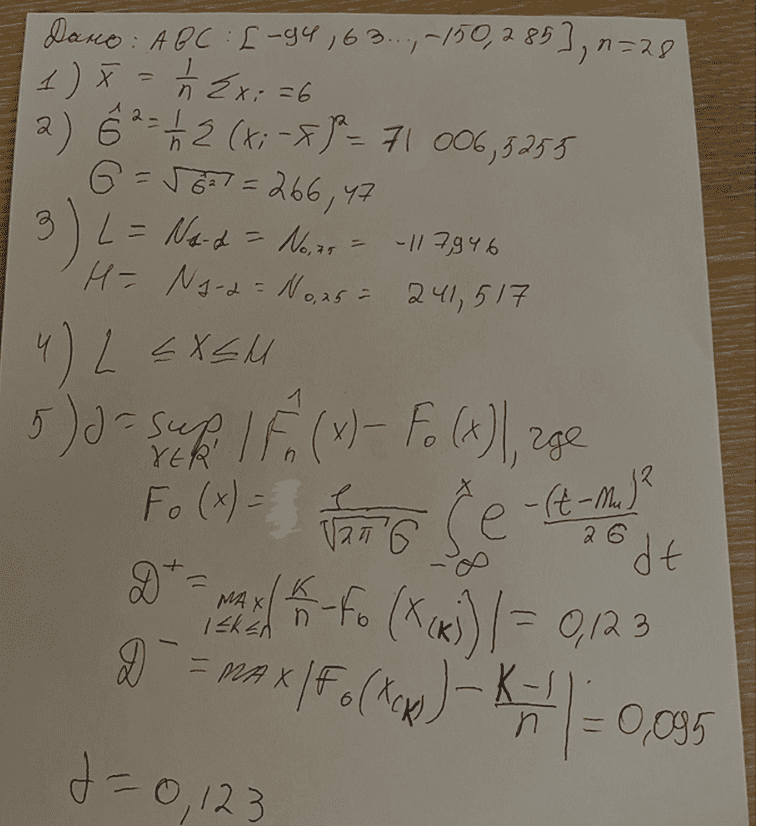 Дано: ABC: [-94,63..., -150,285], n=28
1) x̄ = 1/n Σxᵢ = 6
2) σ̂² = 1/n Σ (xᵢ - x̄)² = 71 006,5255
σ = √σ̂² = 266,47
3) L = N₁₋α = N₀,₇₅ = -117,946
H = N₁₋α = N₀,₂₅ = 241,517
4) L ≤ x ≤ H
5) d = sup x∈R |F̂ₙ(x) - F₀(x)|, где
F₀(x) = 1/(√2π σ) ∫_{-∞}^{x} e^{-(t-Mμ)²/2σ} dt
D⁺ = MAX 1≤k≤n |K/n - F₀(x₍K₎)| = 0,123
D⁻ = MAX |F₀(x₍K₎) - (K-1)/n| = 0,095
d = 0,123